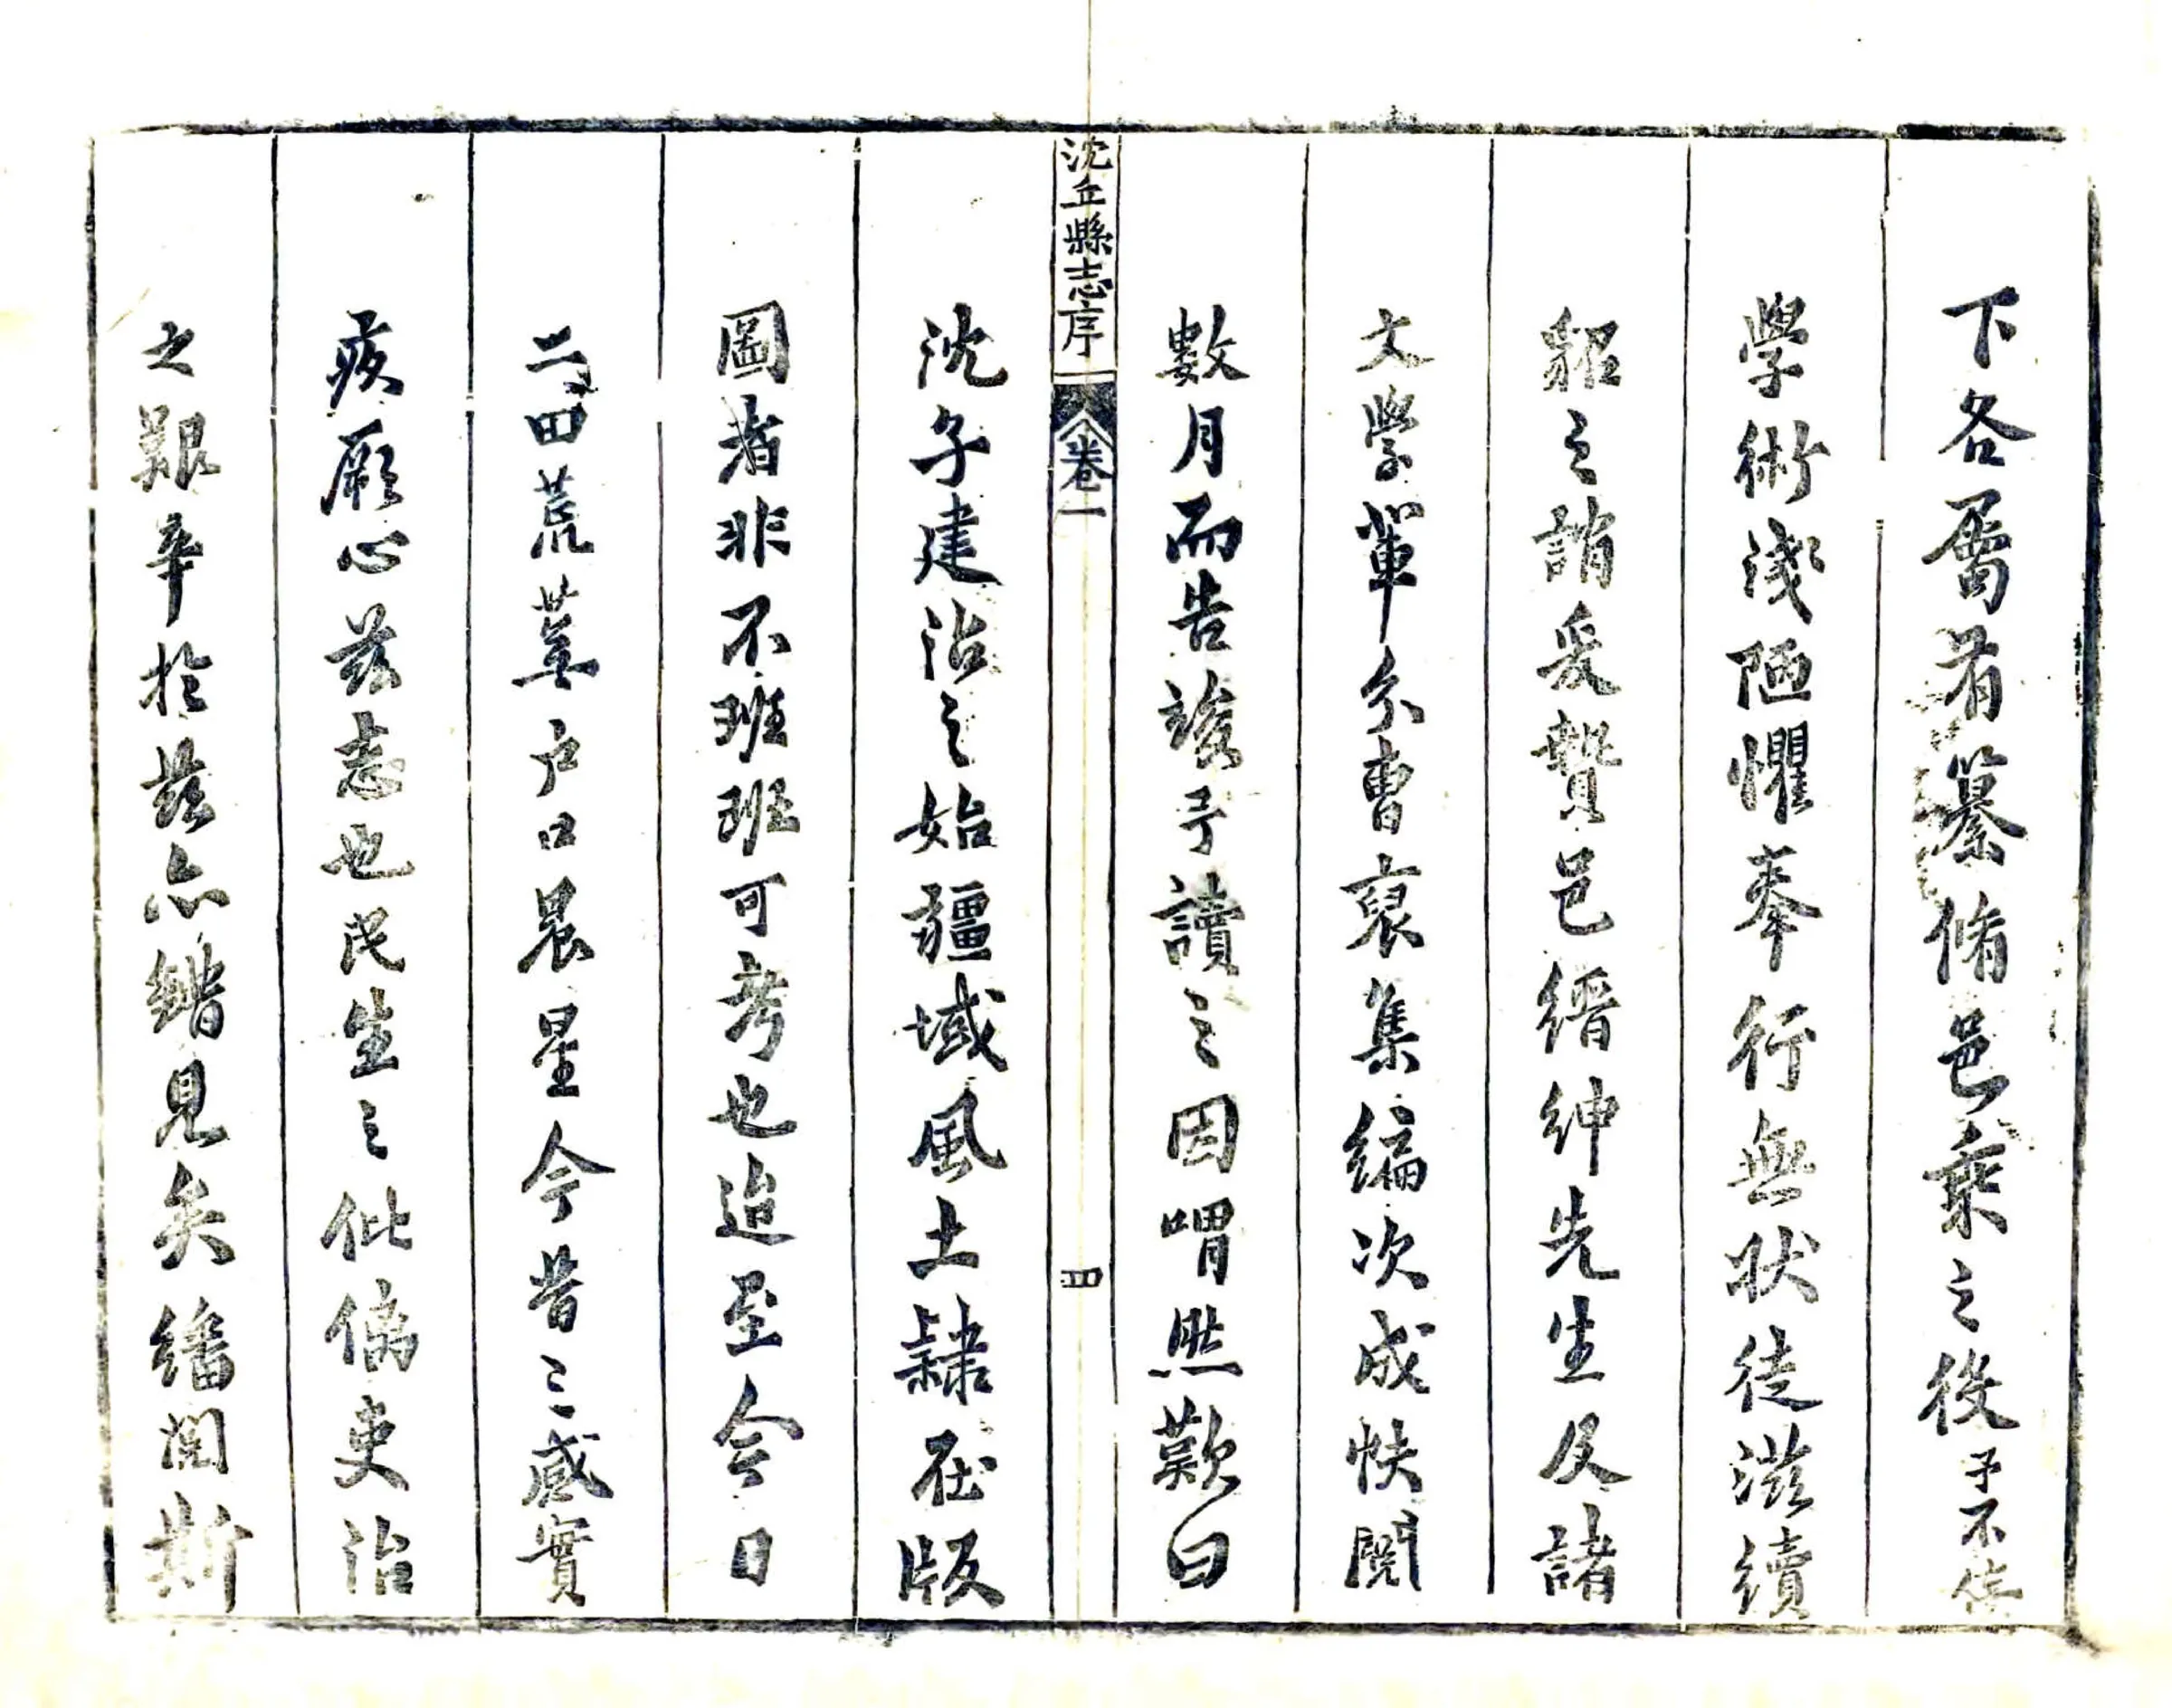 下各屬有纂脩邑乘之役予不佞
學術淺陋懼奉行無狀徒滋續
貂之誚爰贊邑縉紳先生及諸
文學輩分曹裒集編次成帙閱
數月而告竣予讀之因喟然歎曰
沈丘縣志序
卷一
四
沈子建治之始疆域風土隸在版
圖者非不班班可考也迨至今日
田荒蕪户口晨星今昔之感實
疚厥心茲志也民生之仳㒧吏治
之艱辛於茲亦畧見矣繙閱斯